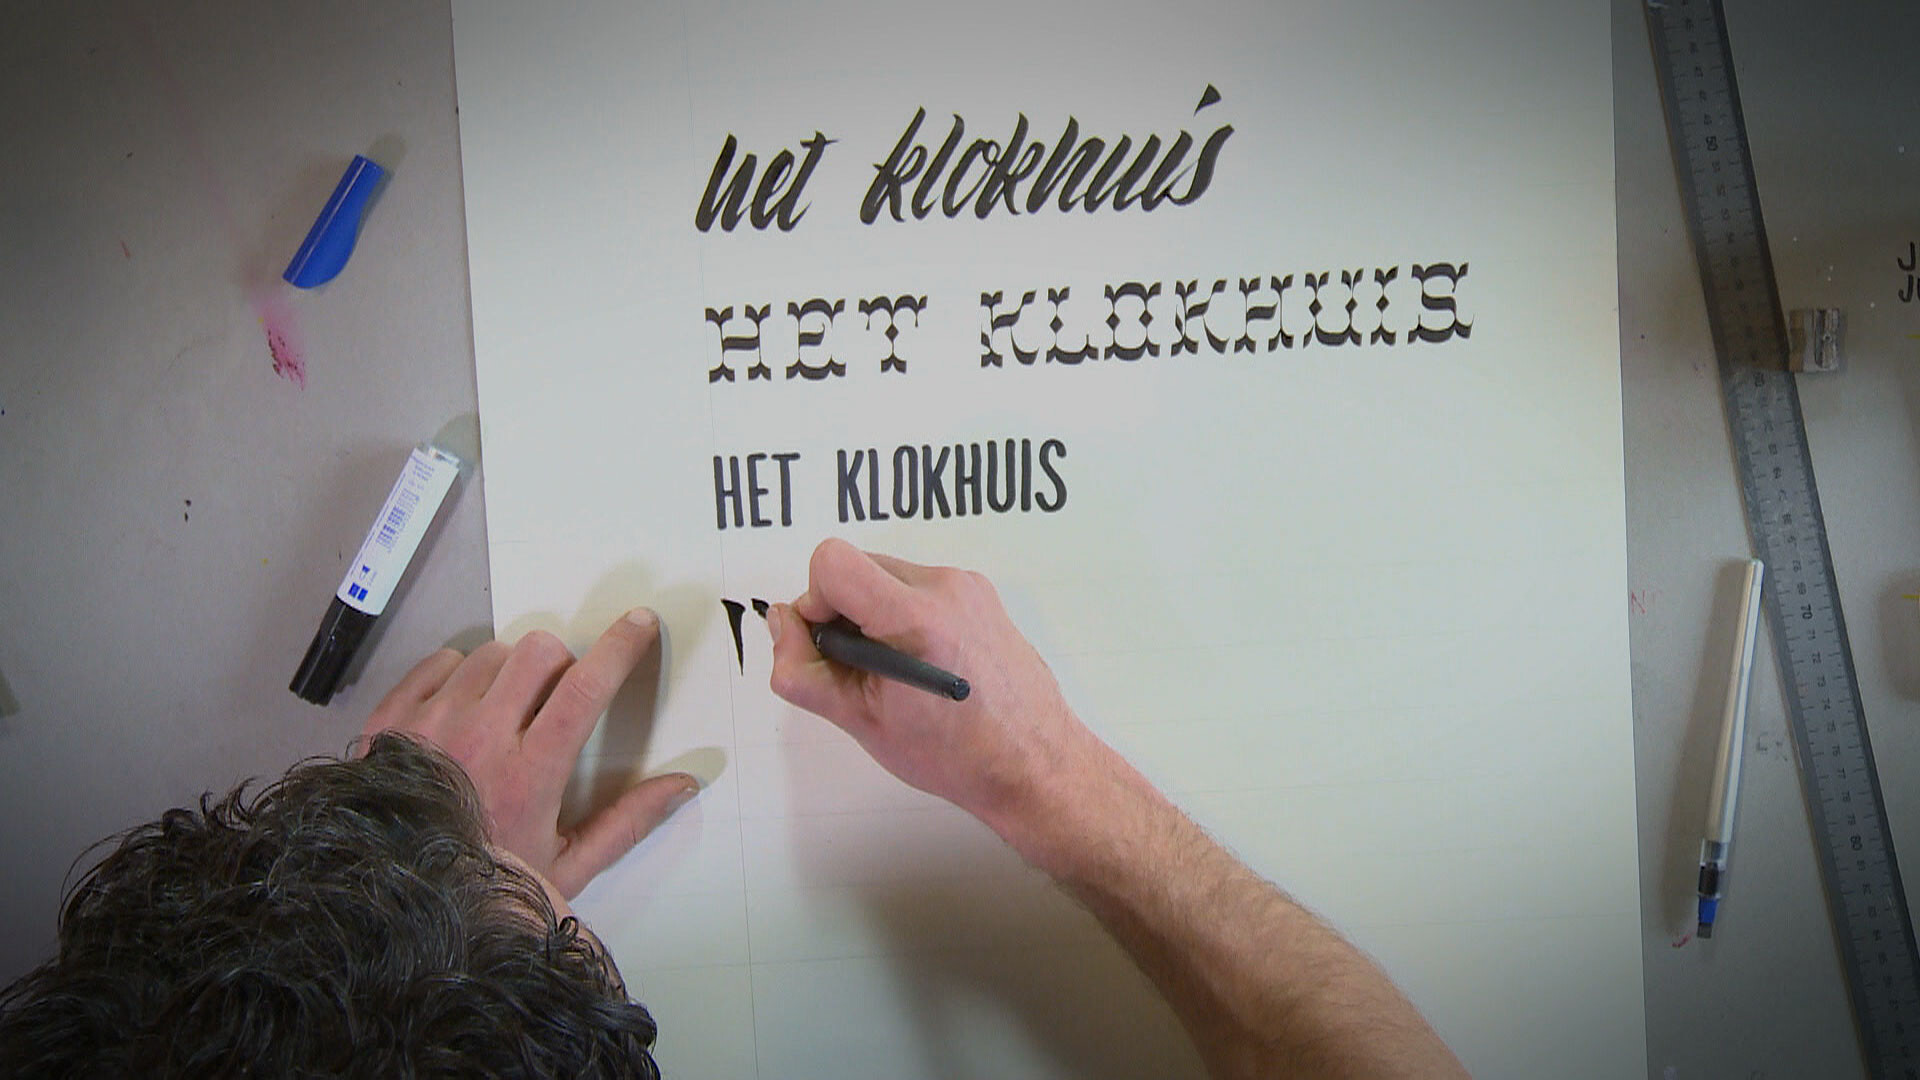 het klokhuis
HET KLOKHUIS
HET KLOKHUIS